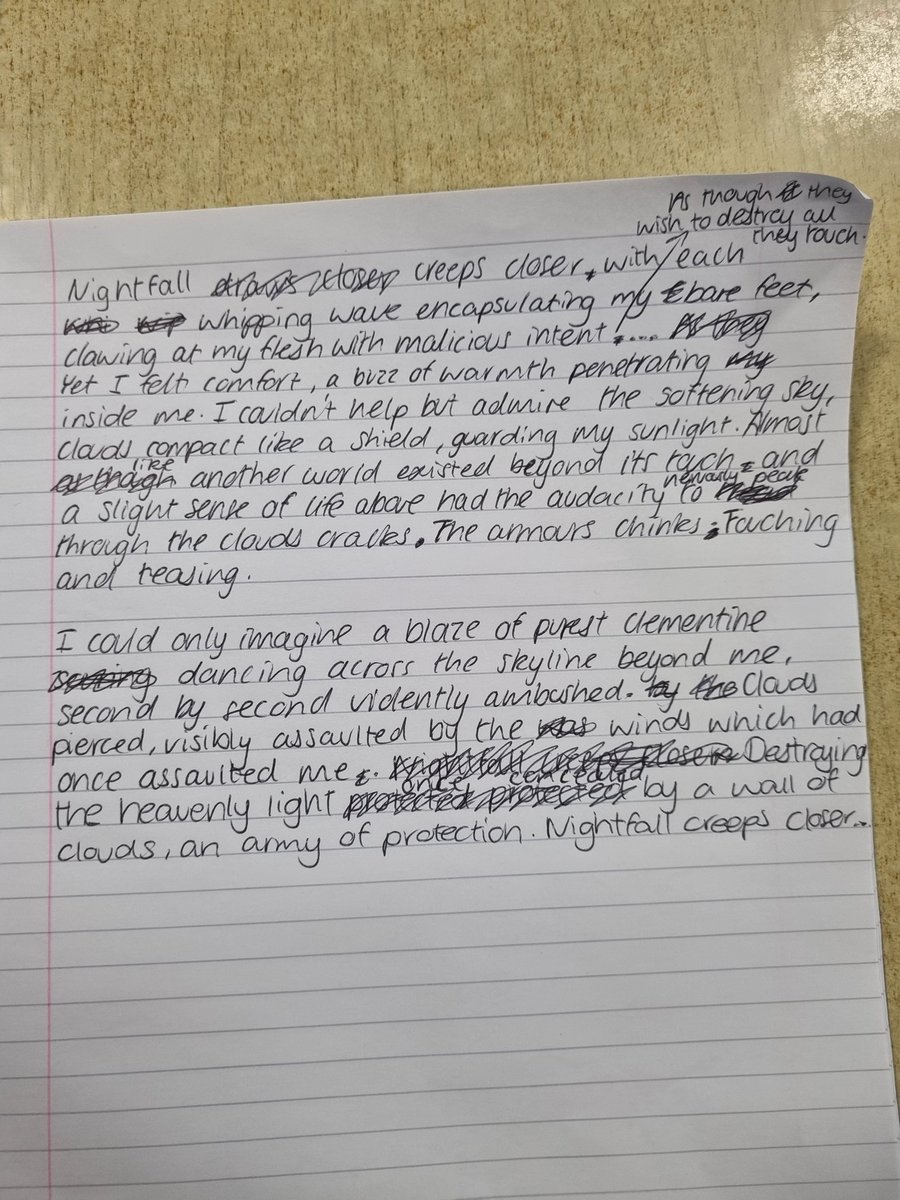 As though they
wish to destroy all
they touch.
Nightfall draws closer creeps closer, with each
whipping wave encapsulating my bare feet,
clawing at my flesh with malicious intent....
Yet I felt comfort, a buzz of warmth penetrating my
inside me. I couldn't help but admire the softening sky,
clouds compact like a shield, guarding my sunlight. Almost
like
as though another world existed beyond its touch and
nervously peak
a slight sense of life above had the audacity to
through the clouds cracks. The armours chinks; Touching
and teasing.
I could only imagine a blaze of purest clementine
dancing across the skyline beyond me,
second by second violently ambushed. by the Clouds
pierced, visibly assaulted by the winds which had
once assaulted me. Nightfall creeps closer Destroying
once concealed
the heavenly light protected protected by a wall of
clouds, an army of protection. Nightfall creeps closer...